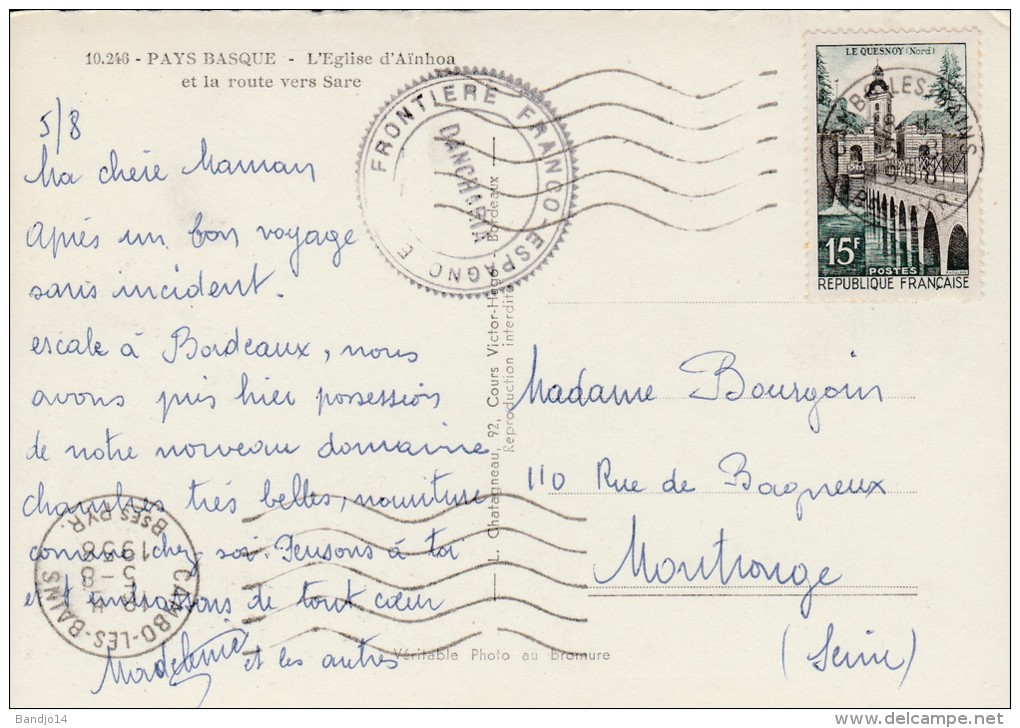 10.246 - PAYS BASQUE - L'Eglise d'Aïnhoa
et la route vers Sare
5/8
Ma chère Maman
Après un bon voyage
sans incident.
escale à Bordeaux, nous
avons pris hier possession
de notre nouveau domaine
chambres très belles, nourriture
comme chez soi. Pensons à toi
et t'embrassons de tout cœur
Madeleine et les autres
FRONTIERE FRANCO-ESPAGNOLE
DANCHARIA
L. Chatagneau, 92, Cours Victor-Hugo - Bordeaux
Reproduction interdite
Véritable Photo au Bromure
LE QUESNOY (Nord)
15F
POSTES
REPUBLIQUE FRANÇAISE
CAMBO-LES-BAINS
1958
Madame Bourgoin
110 Rue de Bagneux
Montrouge
(Seine)
CAMBO-LES-BAINS
5-8
1958
BSES PYR.
Bandjo14
http://www.delcampe.net